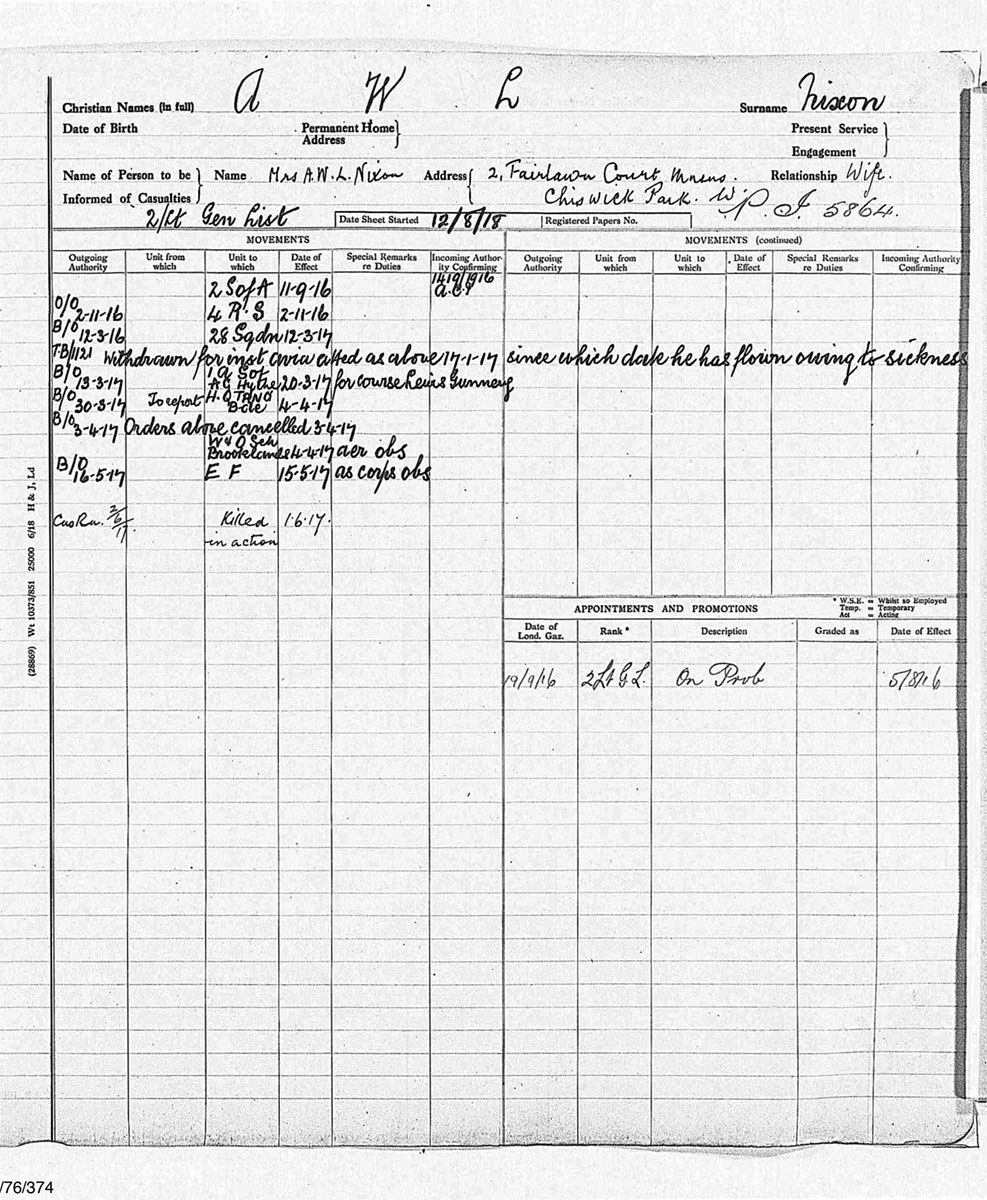 Christian Names (in full) A W L Surname Nixon
Date of Birth Permanent Home Address Present Service
Engagement
Name of Person to be Informed of Casualties Name Mrs A.W.L. Nixon Address 2, Fairlawn Court Mnsns. Relationship Wife.
Chiswick Park. W. P. I. 5864.
2/Lt Gen List Date Sheet Started 12/8/18 Registered Papers No.
MOVEMENTS MOVEMENTS (continued)
Outgoing Authority Unit from which Unit to which Date of Effect Special Remarks re Duties Incoming Authority Confirming Outgoing Authority Unit from which Unit to which Date of Effect Special Remarks re Duties Incoming Authority Confirming
2 S of A 11-9-16 1419/1916
O/O 2-11-16 4 R.S 2-11-16
B/O 12-3-16 28 Sqdn 12-3-17
TB/1121 Withdrawn from inst avia as above 17-1-17 since which date he has flown owing to sickness
B/O 13-3-17 1 A Sof A G Hythe 20-3-17 for course Lewis Gunnery
B/O 30-3-17 To report H.Q TRNG Bde 4-4-17
B/O 3-4-17 Orders above cancelled 3-4-17
W & O Sch Brooklands 4-4-17 aer obs
B/O 16-5-17 E F 15-5-17 as corps obs
Cas Rn. 2/6/17 Killed in action 1.6.17.
APPOINTMENTS AND PROMOTIONS
* W.S.E. = Whilst so Employed
Temp. = Temporary
Act = Acting
Date of Lond. Gaz. Rank * Description Graded as Date of Effect
19/9/16 2Lt G L. On Prob 5/8/16
(28869) Wt 10373/851 25000 6/18 H & J, Ld
/76/374